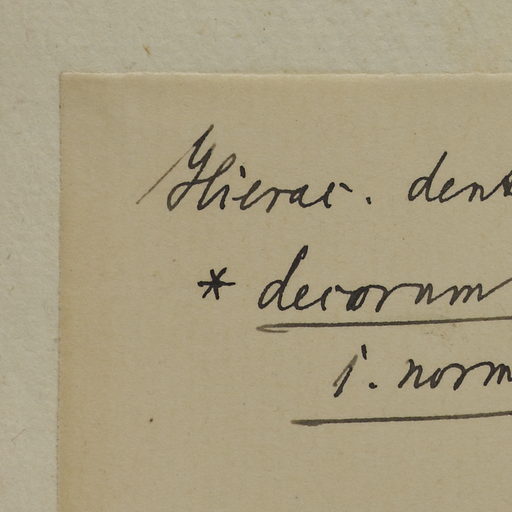 Hierac. dent
* decorum
i. norm